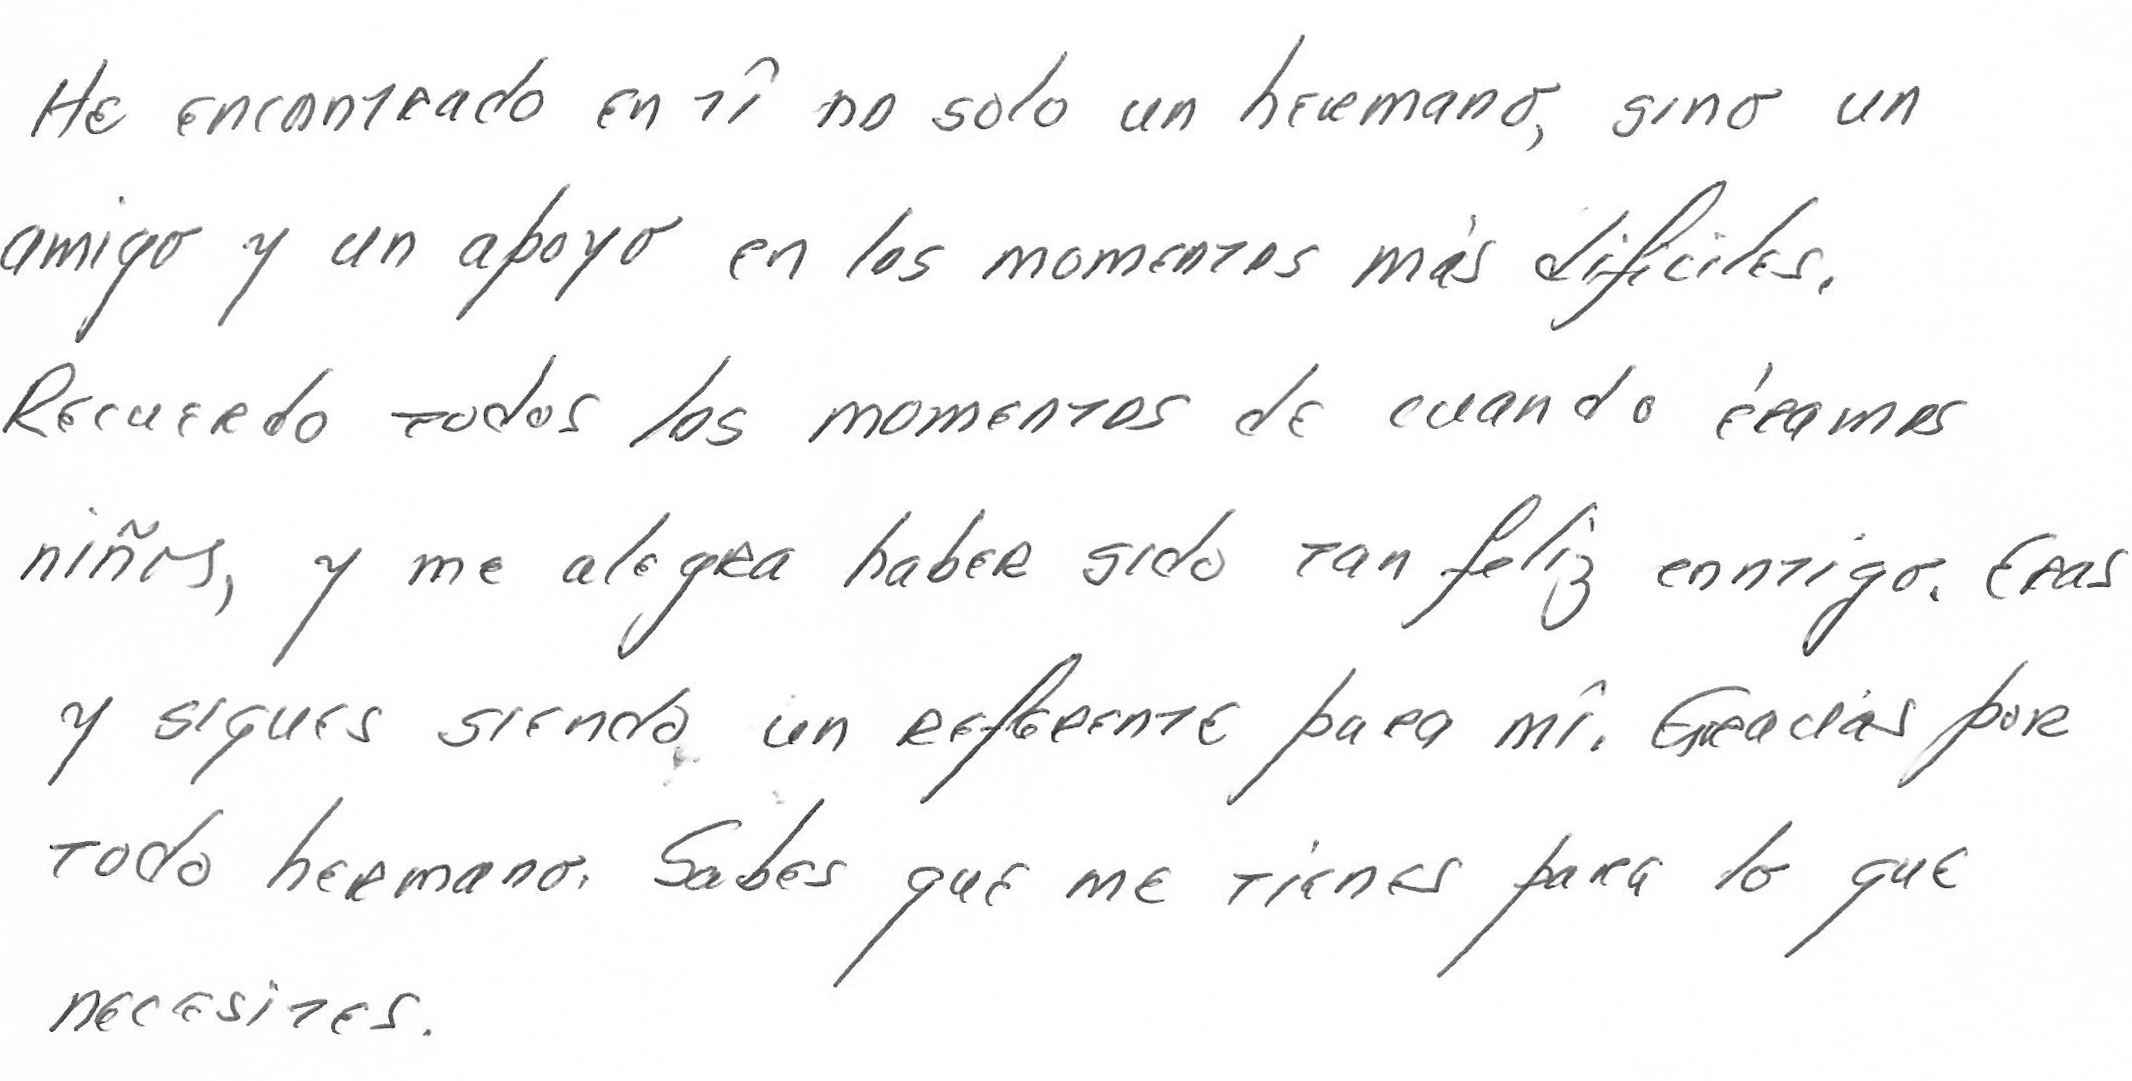 He encontrado en tí no solo un hermano, sino un
amigo y un apoyo en los momentos más difíciles.
Recuerdo todos los momentos de cuando éramos
niños, y me alegra haber sido tan feliz contigo. Eras
y sigues siendo un referente para mí. Gracias por
todo hermano. Sabes que me tienes para lo que
necesites.